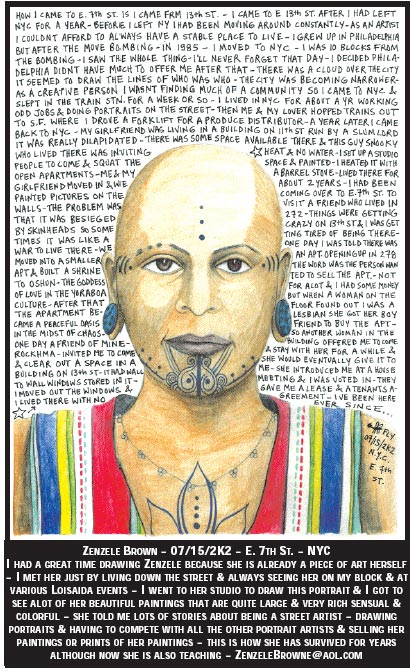 HOW I CAME TO E. 7TH ST. IS I CAME FRM 13TH ST. - I CAME TO E 13TH ST. AFTER I HAD LEFT
NYC FOR A YEAR - BEFORE I LEFT NY I HAD BEEN MOVING AROUND CONSTANTLY - AS AN ARTIST
I COULDNT AFFORD TO ALWAYS HAVE A STABLE PLACE TO LIVE - I GREW UP IN PHILADELPHIA
BUT AFTER THE MOVE BOMBING - IN 1985 - I MOVED TO NYC - I WAS 10 BLOCKS FROM
THE BOMBING - I SAW THE WHOLE THING - I'LL NEVER FORGET THAT DAY - I DECIDED PHILA-
DELPHIA DIDNT HAVE MUCH TO OFFER ME AFTER THAT - THERE WAS A CLOUD OVER THE CITY
IT SEEMED TO DRAW THE LINES OF WHO WAS WHO - THE CITY WAS BECOMING NARROWER -
AS A CREATIVE PERSON I WASNT FINDING MUCH OF A COMMUNITY SO I CAME TO NYC &
SLEPT IN THE TRAIN STN. FOR A WEEK OR SO - I LIVED IN NYC FOR ABOUT A YR WORKING
ODD JOBS & DOING PORTRAITS ON THE STREET - THEN ME & MY LOVER HOPPED TRAINS OUT
TO S.F. WHERE I DROVE A FORKLIFT FOR A PRODUCE DISTRIBUTOR - A YEAR LATER I CAME
BACK TO NYC - MY GIRLFRIEND WAS LIVING IN A BUILDING ON 11TH ST RUN BY A SLUMLORD
IT WAS REALLY DILAPIDATED - THERE WAS SOME SPACE AVAILABLE THERE & THIS GUY SNOOKY
WHO LIVED THERE WAS INVITING
PEOPLE TO COME & SQUAT THE
OPEN APARTMENTS - ME & MY
GIRLFRIEND MOVED IN & WE
PAINTED PICTURES ON THE
WALLS - THE PROBLEM WAS
THAT IT WAS BESIEGED
BY SKINHEADS SO SOME
TIMES IT WAS LIKE A
WAR TO LIVE THERE - WE
MOVED INTO A SMALLER
APT & BUILT A SHRINE
TO OSHON - THE GODDESS
OF LOVE IN THE YORABOA
CULTURE - AFTER THAT
THE APARTMENT BE-
CAME A PEACEFUL OASIS
IN THE MIDST OF CHAOS -
ONE DAY A FRIEND OF MINE -
ROCKHMA - INVITED ME TO COME
& CLEAR OUT A SPACE IN A
BUILDING ON 13TH ST - IT HAD WALL
TO WALL WINDOWS STORED IN IT -
I MOVED OUT THE WINDOWS &
I LIVED THERE WITH NO
☆→
☆HEAT & NO WATER - I SET UP A STUDIO
SPACE & PAINTED - I HEATED IT WITH
A BARREL STOVE - LIVED THERE FOR
ABOUT 2 YEARS - I HAD BEEN
COMING OVER TO E. 7TH ST. TO
VISIT A FRIEND WHO LIVED IN
272 - THINGS WERE GETTING
CRAZY ON 13TH ST & I WAS GET
TING TIRED OF BEING THERE -
ONE DAY I WAS TOLD THERE WAS
AN APT. OPENING UP IN 278
THE WORD WAS THE PERSON WAN
TED TO SELL THE APT. - NOT
FOR ALOT & I HAD SOME MONEY
BUT WHEN A WOMAN ON THE
FLOOR FOUND OUT I WAS A
LESBIAN SHE GOT HER BOY
FRIEND TO BUY THE APT -
SO ANOTHER WOMAN IN THE
BUILDING OFFERED ME TO COME
& STAY WITH HER FOR A WHILE &
SHE WOULD EVENTUALLY GIVE IT TO
ME - SHE INTRODUCED ME AT A HOUSE
MEETING & I WAS VOTED IN - THEY
GAVE ME A LEASE & A TENANTS A-
GREEMENT - I'VE BEEN HERE
EVER SINCE...
FLY
07/15/2K2
N.Y.C.
E. 7TH
ST.
ZENZELE BROWN - 07/15/2K2 - E. 7TH ST. - NYC
I HAD A GREAT TIME DRAWING ZENZELE BECAUSE SHE IS ALREADY A PIECE OF ART HERSELF
- I MET HER JUST BY LIVING DOWN THE STREET & ALWAYS SEEING HER ON MY BLOCK & AT
VARIOUS LOISAIDA EVENTS - I WENT TO HER STUDIO TO DRAW THIS PORTRAIT & I GOT TO
SEE ALOT OF HER BEAUTIFUL PAINTINGS THAT ARE QUITE LARGE & VERY RICH SENSUAL &
COLORFUL - SHE TOLD ME LOTS OF STORIES ABOUT BEING A STREET ARTIST - DRAWING
PORTRAITS & HAVING TO COMPETE WITH ALL THE OTHER PORTRAIT ARTISTS & SELLING HER
PAINTINGS OR PRINTS OF HER PAINTINGS - THIS IS HOW SHE HAS SURVIVED FOR YEARS
ALTHOUGH NOW SHE IS ALSO TEACHING - ZENZELEBROWNE@AOL.COM